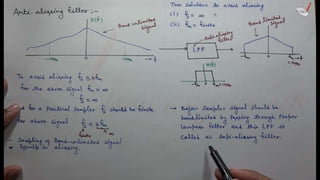 Anti-aliasing filter :-
x(f)
Band unlimited signal
0
f
To avoid aliasing fs ≥ 2fm
for the above signal fm = ∞
fs = ∞
But for a Practical sampler fs should be finite
for above signal fs < 2fm
finite
∞
→ Sampling of Band-unlimited signal
results in aliasing.
Two solutions to avoid aliasing
(i) fs = ∞ ×
(ii) fm = finite
Anti-aliasing filter
LPF
Band limited signal
0
f
→ Before sampler signal should be
bandlimited by passing through proper
lowpass filter and this LPF is
called as Anti-aliasing filter.